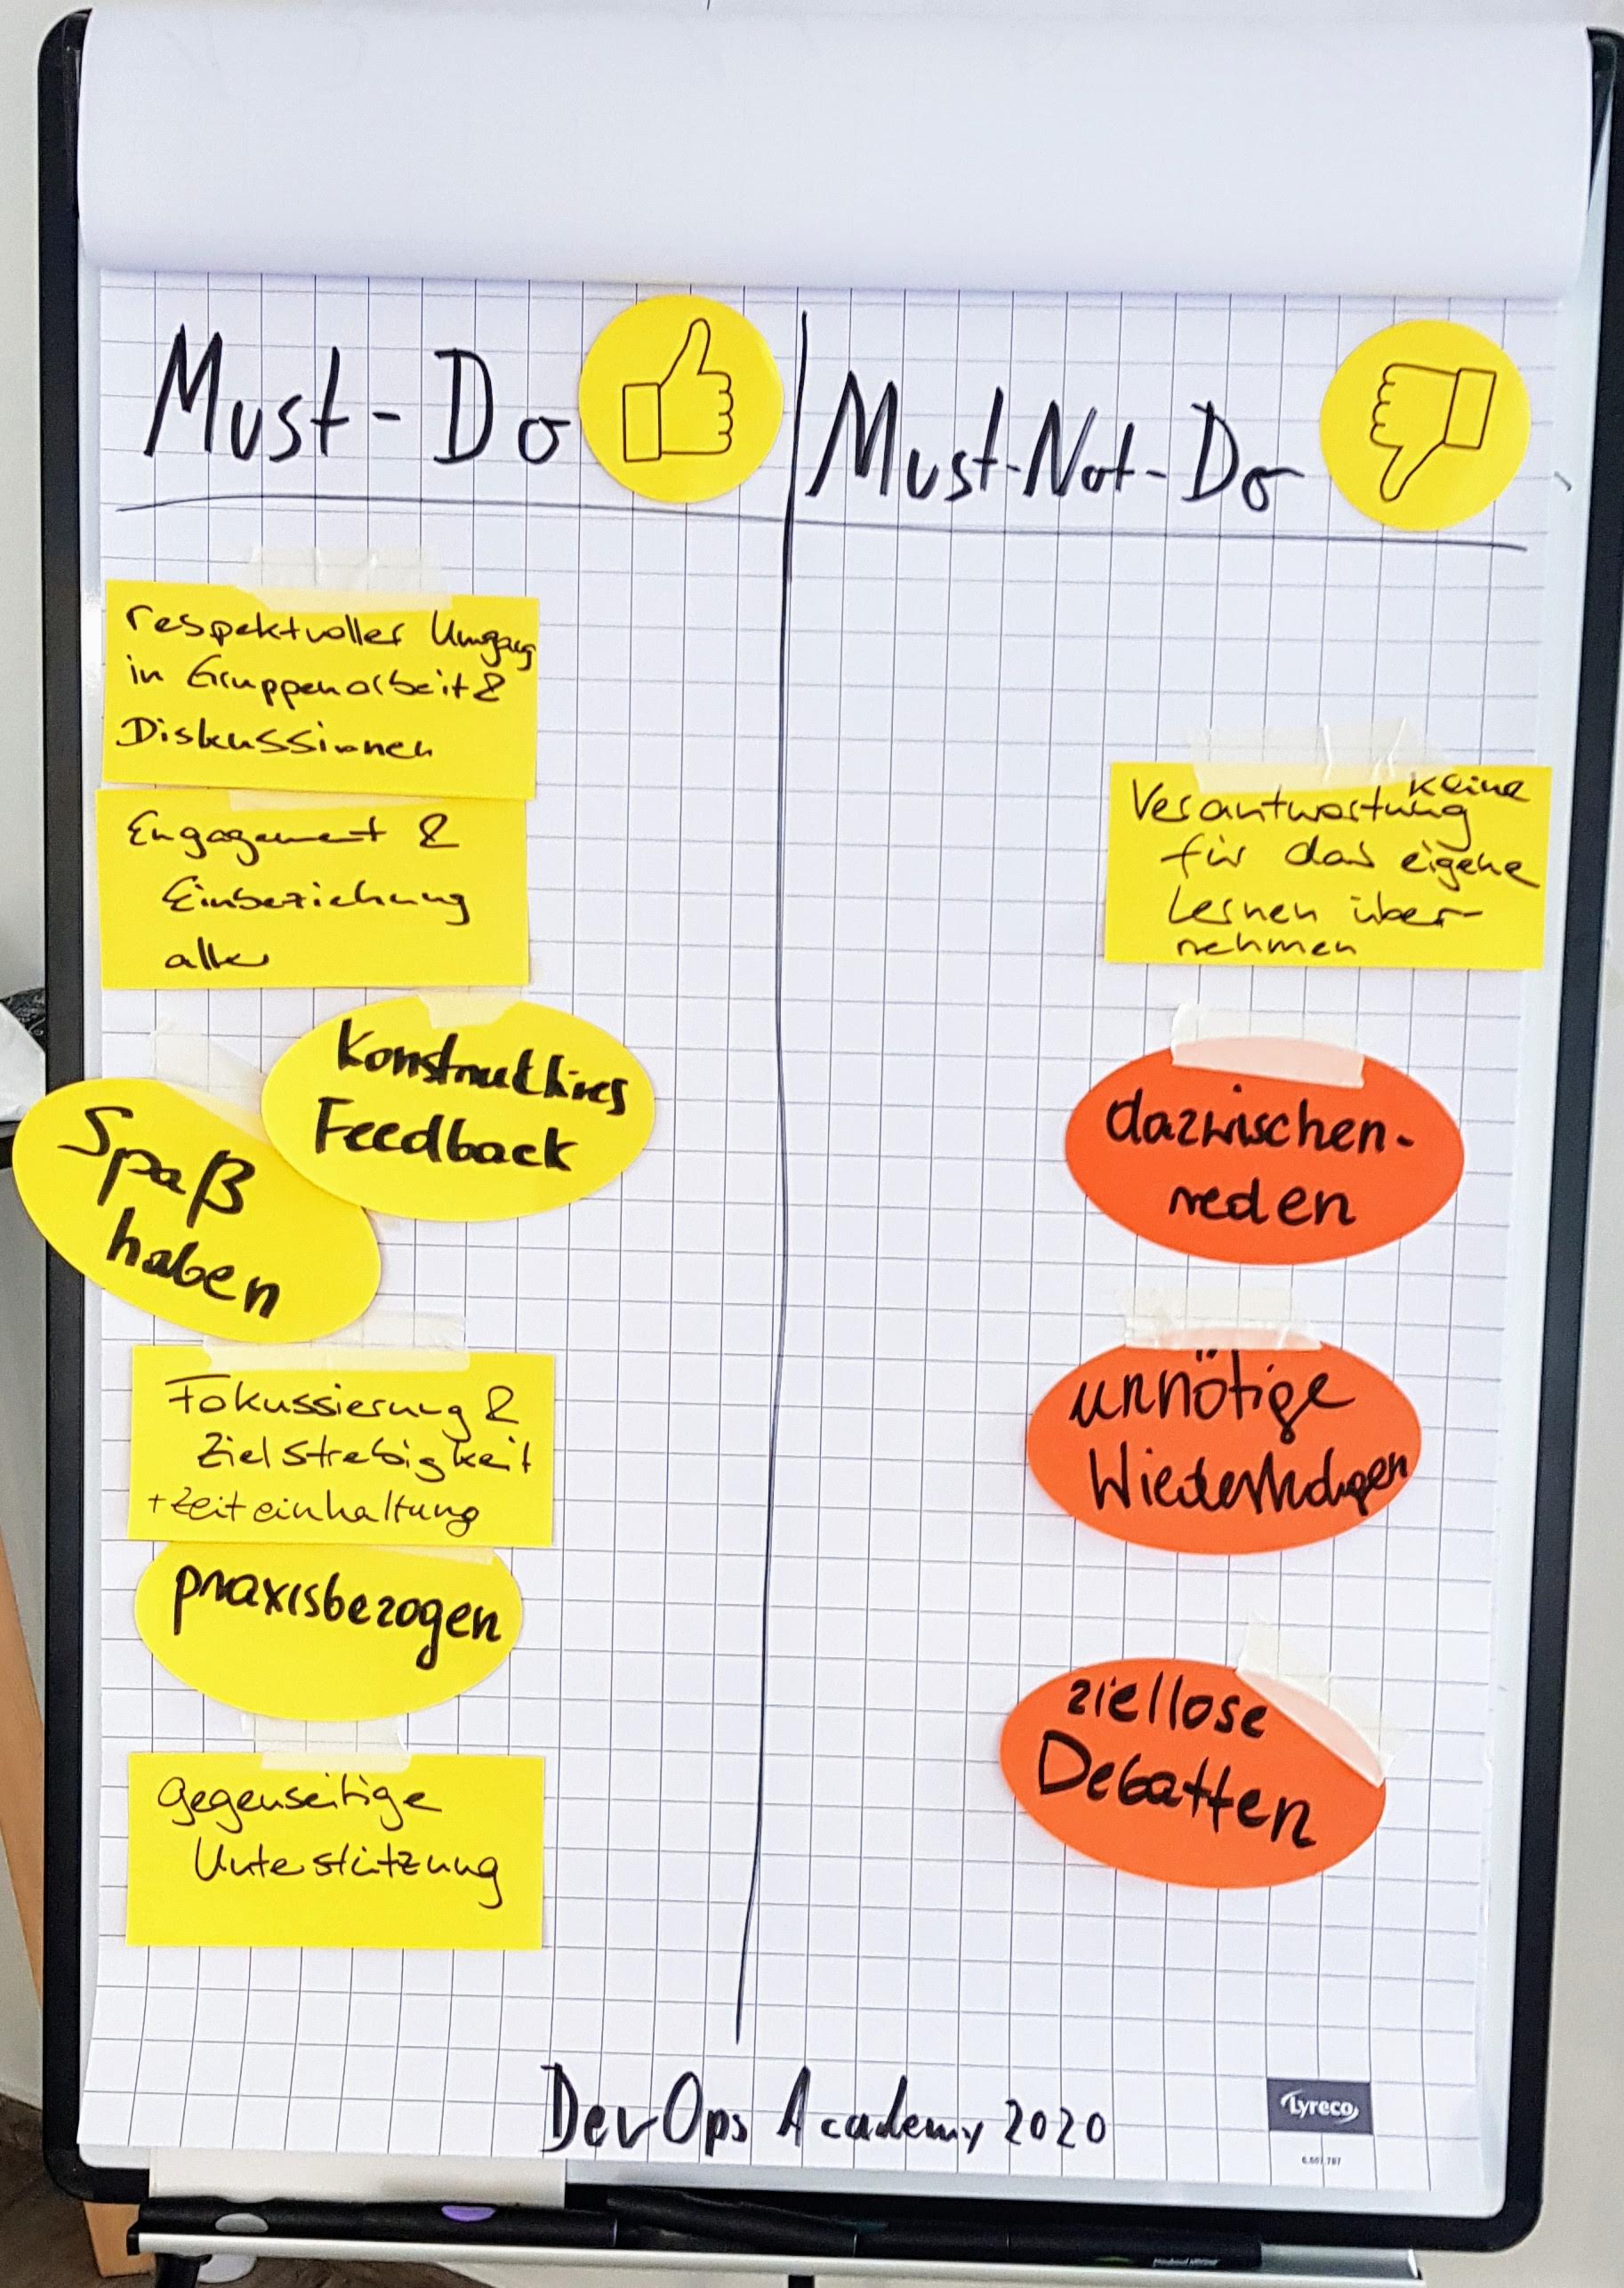 Must-Do
Must-Not-Do
respektvoller Umgang
in Gruppenarbeit &
Diskussionen
Engagement &
Einbeziehung
aller
Konstruktives
Feedback
Spaß
haben
Fokussierung &
Zielstrebigkeit
+ Zeiteinhaltung
praxisbezogen
gegenseitige
Unterstützung
keine
Verantwortung
für das eigene
Lernen über-
nehmen
dazwischen-
reden
unnötige
Wiederholungen
ziellose
Debatten
DevOps Academy 2020
Lyreco